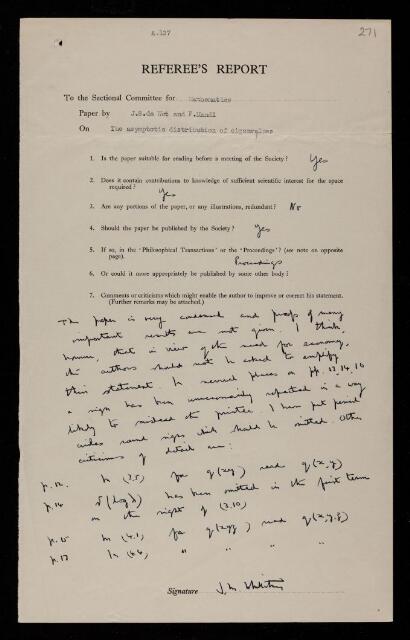 A.127
271
REFEREE'S REPORT
To the Sectional Committee for Mathematics
Paper by J.S.de Wet and F.Mandl
On The asymptotic distribution of eigenvalues
1. Is the paper suitable for reading before a meeting of the Society? Yes
2. Does it contain contributions to knowledge of sufficient scientific interest for the space
required? Yes
3. Are any portions of the paper, or any illustrations, redundant? No
4. Should the paper be published by the Society? Yes
5. If so, in the 'Philosophical Transactions' or the 'Proceedings'? (see note on opposite
page). Proceedings
6. Or could it more appropriately be published by some other body?
7. Comments or criticisms which might enable the author to improve or correct his statement.
(Further remarks may be attached.)
The paper is very condensed and proofs of many
important results are not given. I think,
however, that in view of the need for economy,
the authors should not be asked to amplify
their statement. In several places on pp. 12, 14, 16
a sign has been unnecessarily repeated in a way
likely to mislead the printer. I have put pencil
circles round signs which should be omitted. Other
criticisms of detail are:
p.12. In (3.5) for q(xy) read q(x,y)
p.14 has been omitted in the first term
on the right of (3.10)
p.15 In (4.1) for q(xyz) read q(x,y,z)
p.17 In (4.4) " " " "
Signature